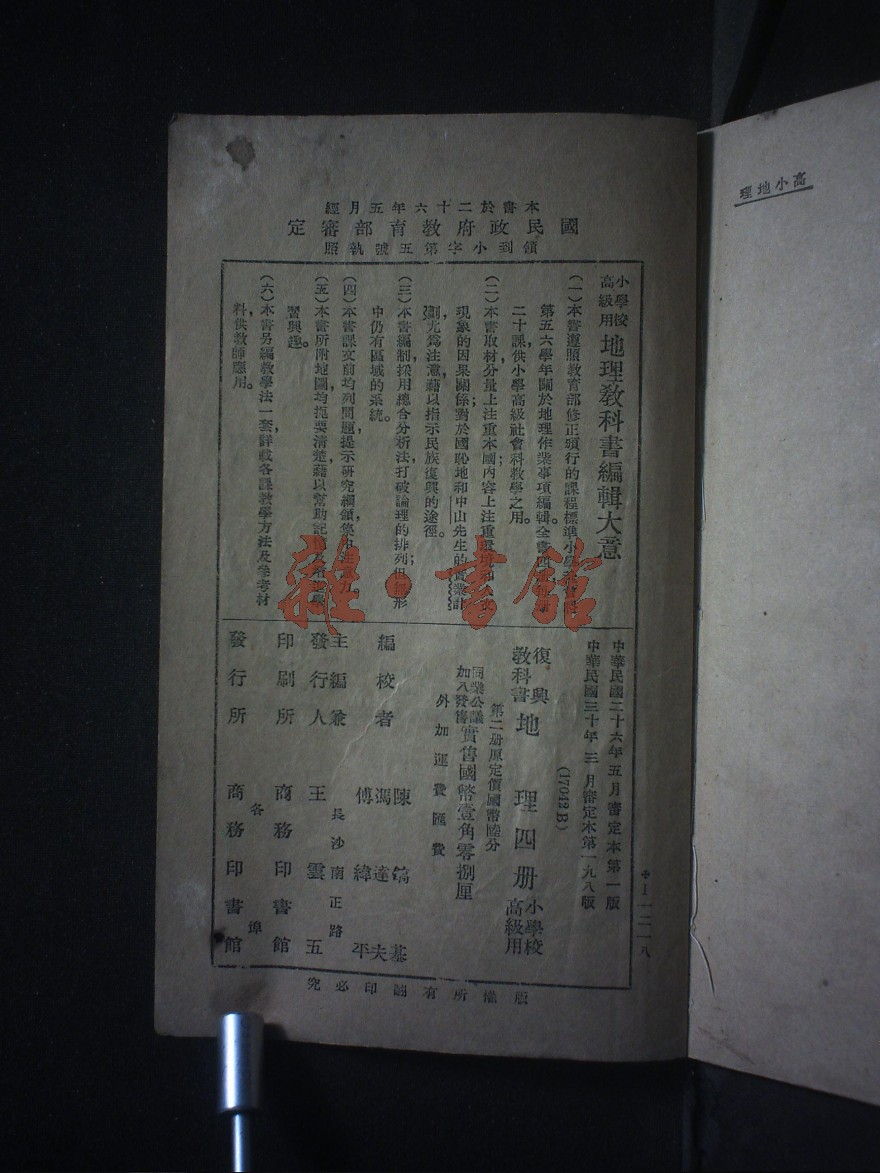 高小地理
本書於二十六年五月經
國民政府教育部審定
領到小字第五號執照
小學校
高級用
地理教科書編輯大意
(一)本書遵照教育部修正頒行的課程標準小學
第五六學年關於地理作業事項編輯全書四册
二十課,供小學高級社會科教學之用。
(二)本書取材,分量上注重本國;內容上注重
現象的因果關係;對於國恥地和中山先生的實業計
劃,尤爲注意,藉以指示民族復興的途徑。
(三)本書編制,採用總合分析法,打破論理的排列;但無形
中仍有區域的系統。
(四)本書課文前均列問題,提示研究綱領,集中注意力。
(五)本書所附地圖,均扼要清楚,藉以幫助記憶
習興趣。
(六)本書另編教學法一套,詳載各課教學方法及參考材
料,供教師應用。
中華民國二十六年五月審定本第一版
中華民國三十年三月審定本第一九八版
(17042B)
復興
教科書
地理四册
小學校
高級用
第二册原定價國幣陸分
同業公議
加入發售
實售國幣壹角零捌厘
外加運費匯費
編校者
陳鎬基
馮達夫
傅緯平
主編兼
發行人
長沙南正路
王雲五
印刷所
商務印書館
各埠
發行所
商務印書館
版權所有翻印必究
雜·書館